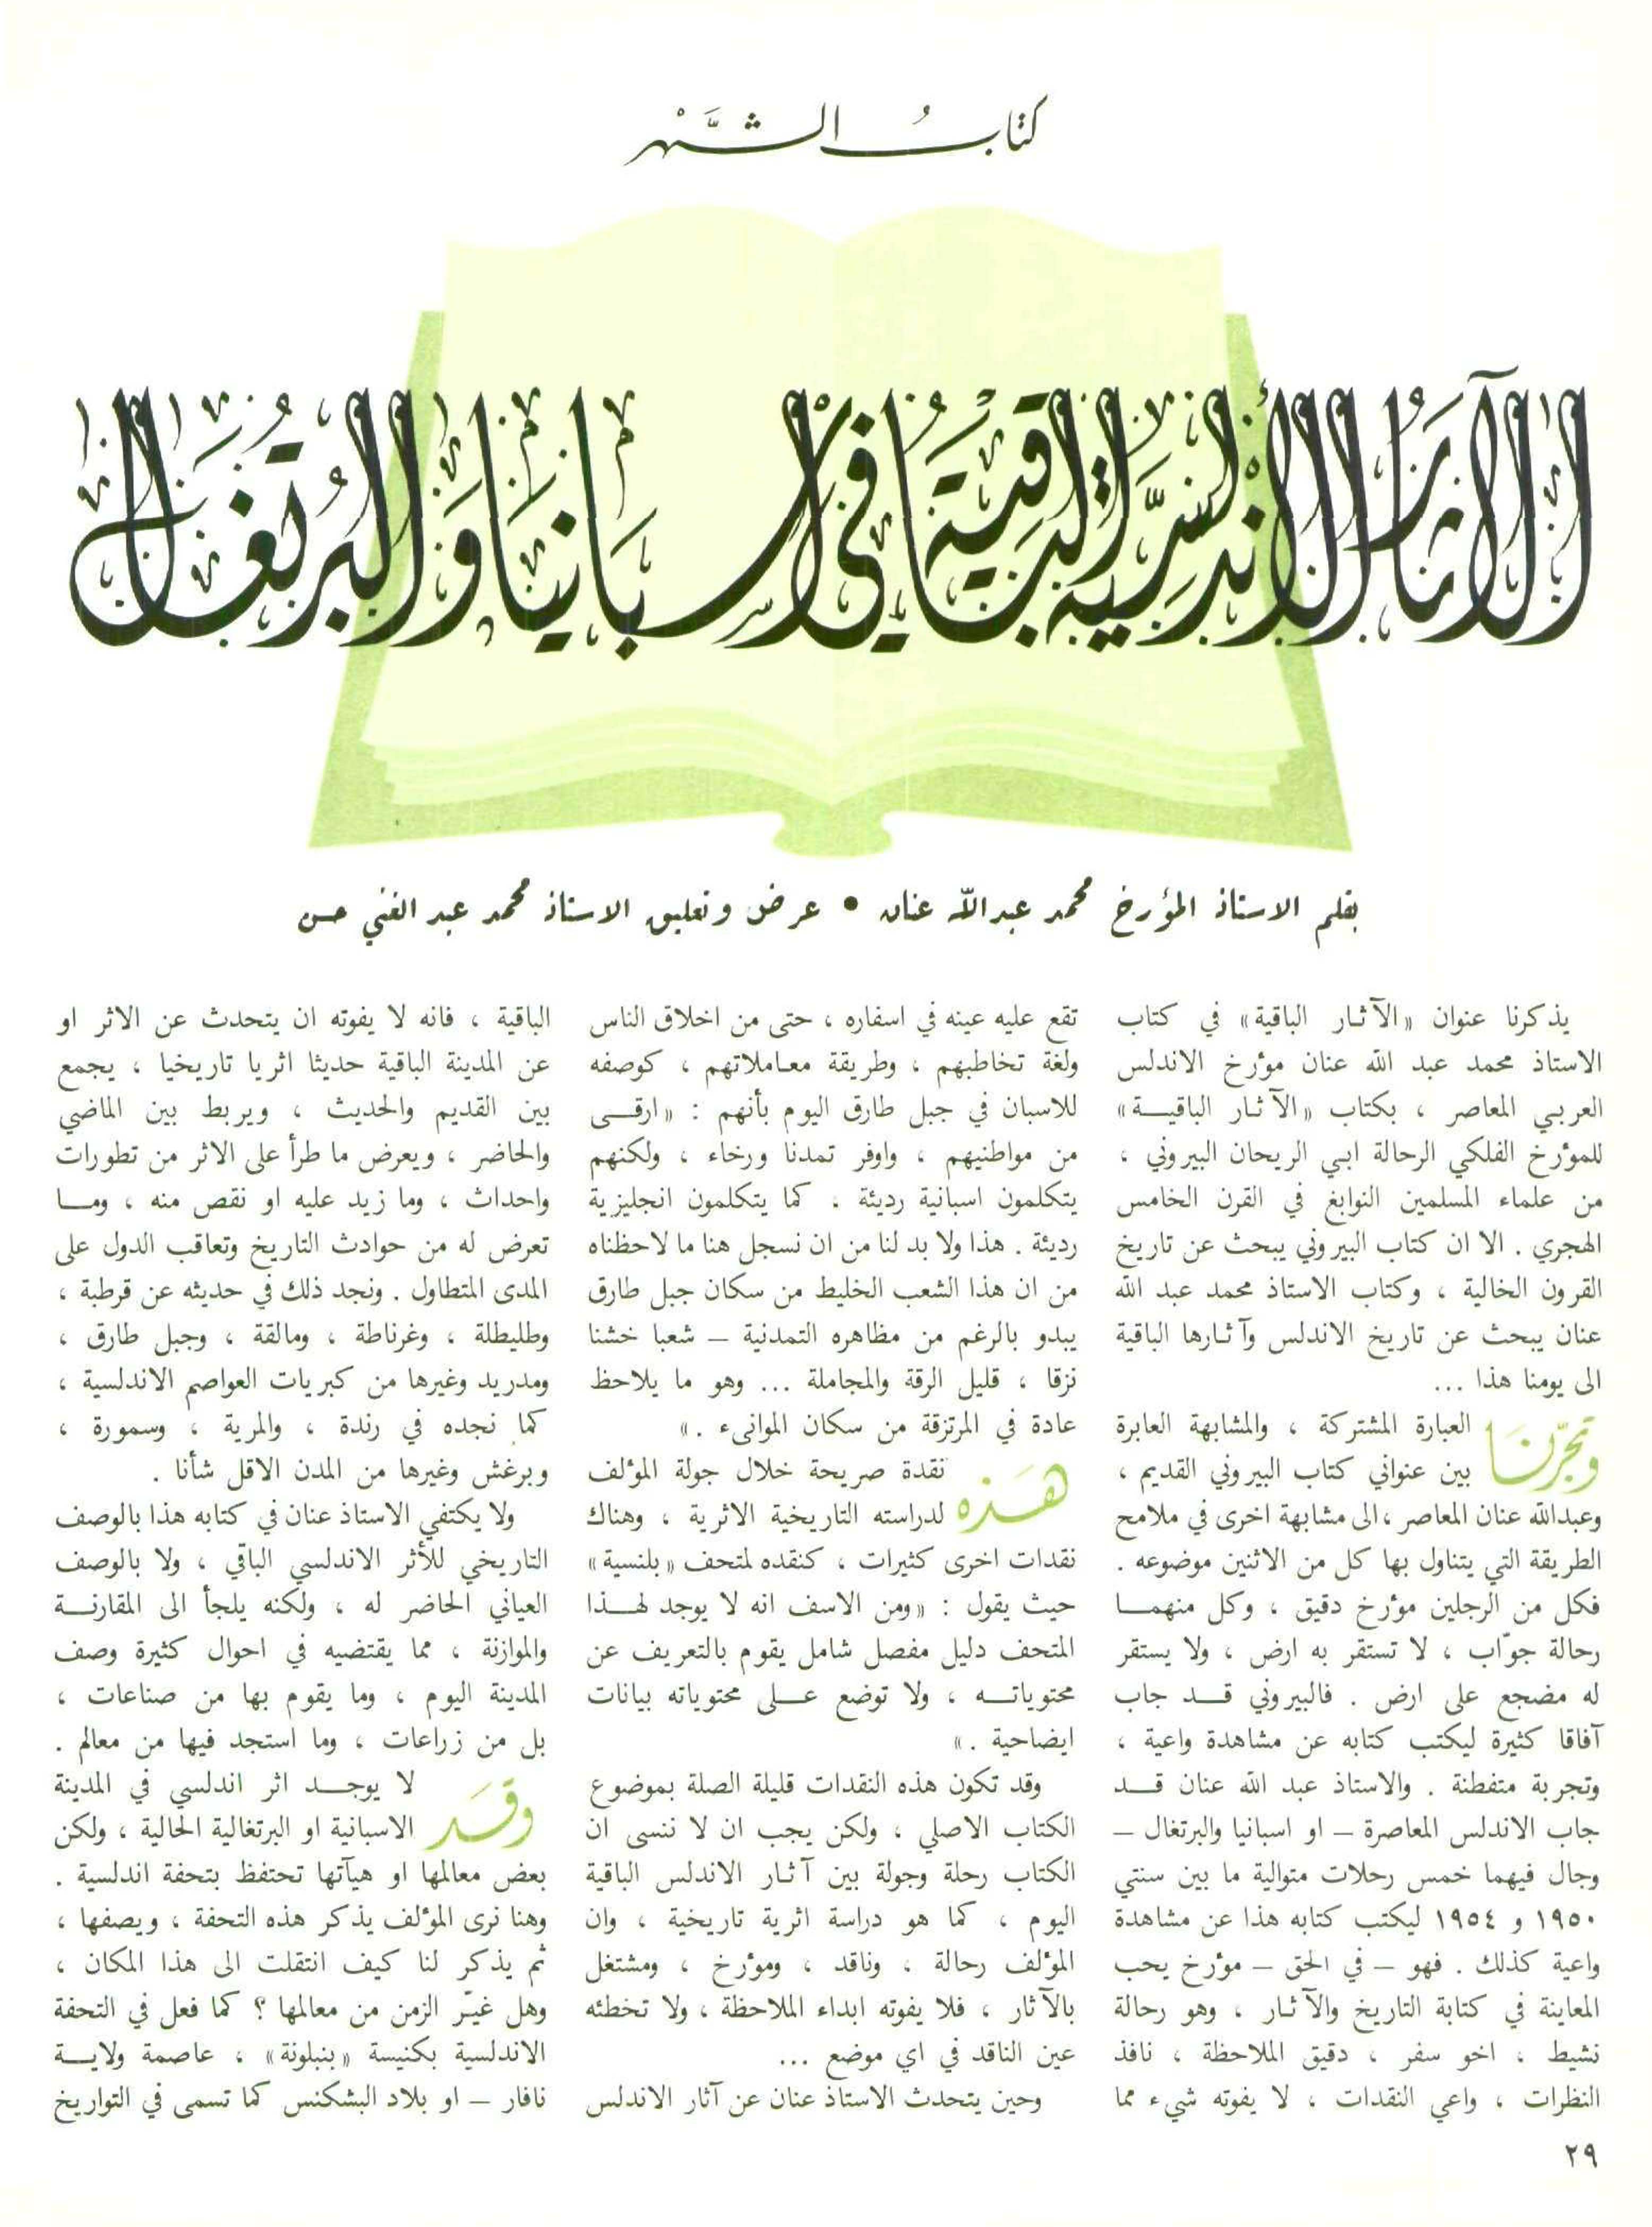 كتاب الشهر
الآثار الأندلسية الباقية في اسبانيا والبرتغال
بقلم الاستاذ المؤرخ محمد عبدالله عنان • عرض وتعليق الاستاذ محمد عبد الغني حسن
يذكرنا عنوان «الآثار الباقية» في كتاب
الاستاذ محمد عبد الله عنان مؤرخ الاندلس
العربي المعاصر ، بكتاب «الآثار الباقيـة»
للمؤرخ الفلكي الرحالة ابي الريحان البيروني ،
من علماء المسلمين النوابغ في القرن الخامس
الهجري . الا ان كتاب البيروني يبحث عن تاريخ
القرون الخالية ، وكتاب الاستاذ محمد عبد الله
عنان يبحث عن تاريخ الاندلس وآثارها الباقية
الى يومنا هذا ...
وتجرّنَا العبارة المشتركة ، والمشابهة العابرة
بين عنواني كتاب البيروني القديم ،
وعبدالله عنان المعاصر ، الى مشابهة اخرى في ملامح
الطريقة التي يتناول بها كل من الاثنين موضوعه .
فكل من الرجلين مؤرخ دقيق ، وكل منهمـا
رحالة جوّاب ، لا تستقر به ارض ، ولا يستقر
له مضجع على ارض . فالبيروني قـد جاب
آفاقا كثيرة ليكتب كتابه عن مشاهدة واعية ،
وتجربة متفطنة . والاستاذ عبد الله عنان قـد
جاب الاندلس المعاصرة – او اسبانيا والبرتغال –
وجال فيهما خمس رحلات متوالية ما بين سنتي
١٩٥٠ و ١٩٥٤ ليكتب كتابه هذا عن مشاهدة
واعية كذلك . فهو – في الحق – مؤرخ يحب
المعاينة في كتابة التاريخ والآثار ، وهو رحالة
نشيط ، اخو سفر ، دقيق الملاحظة ، نافذ
النظرات ، واعي النقدات ، لا يفوته شيء مما
تقع عليه عينه في اسفاره ، حتى من اخلاق الناس
ولغة تخاطبهم ، وطريقة معاملاتهم ، كوصفه
للاسبان في جبل طارق اليوم بأنهم : «ارقـى
من مواطنيهم ، واوفر تمدنا ورخاء ، ولكنهم
يتكلمون اسبانية رديئة . كما يتكلمون انجليزية
رديئة . هذا ولا بد لنا من ان نسجل هنا ما لاحظناه
من ان هذا الشعب الخليط من سكان جبل طارق
يبدو بالرغم من مظاهره التمدنية – شعبا خشنا
نزقا ، قليل الرقة والمجاملة ... وهو ما يلاحظ
عادة في المرتزقة من سكان الموانىء . »
هَـذه نقدة صريحة خلال جولة المؤلف
لدراسته التاريخية الاثرية ، وهناك
نقدات اخرى كثيرات ، كنقده لمتحف «بلنسية»
حيث يقول : «ومن الاسف انه لا يوجد لهـذا
المتحف دليل مفصل شامل يقوم بالتعريف عن
محتوياتـه ، ولا توضع عـلى محتوياته بيانات
ايضاحية . »
وقد تكون هذه النقدات قليلة الصلة بموضوع
الكتاب الاصلي ، ولكن يجب ان لا ننسى ان
الكتاب رحلة وجولة بين آثار الاندلس الباقية
اليوم ، كما هو دراسة اثرية تاريخية ، وان
المؤلف رحالة ، وناقد ، ومؤرخ ، ومشتغل
بالآثار ، فلا يفوته ابداء الملاحظة ، ولا تخطئه
عين الناقد في اي موضع ...
وحين يتحدث الاستاذ عنان عن آثار الاندلس
الباقية ، فانه لا يفوته ان يتحدث عن الاثر او
عن المدينة الباقية حديثا اثريا تاريخيا ، يجمع
بين القديم والحديث ، ويربط بين الماضي
والحاضر ، ويعرض ما طرأ على الاثر من تطورات
واحداث ، وما زيد عليه او نقص منه ، ومـا
تعرض له من حوادث التاريخ وتعاقب الدول على
المدى المتطاول . ونجد ذلك في حديثه عن قرطبة ،
وطليطلة ، وغرناطة ، ومالقة ، وجبل طارق ،
ومدريد وغيرها من كبريات العواصم الاندلسية ،
كما نجده في رندة ، والمرية ، وسمورة ،
وبرغش وغيرها من المدن الاقل شأنا .
ولا يكتفي الاستاذ عنان في كتابه هذا بالوصف
التاريخي للأثر الاندلسي الباقي ، ولا بالوصف
العياني الحاضر له ، ولكنه يلجأ الى المقارنـة
والموازنة ، مما يقتضيه في احوال كثيرة وصف
المدينة اليوم ، وما يقوم بها من صناعات ،
بل من زراعات ، وما استجد فيها من معالم .
وقَـد لا يوجـد اثر اندلسي في المدينة
الاسبانية او البرتغالية الحالية ، ولكن
بعض معالمها او هيآتها تحتفظ بتحفة اندلسية .
وهنا نرى المؤلف يذكر هذه التحفة ، ويصفها ،
ثم يذكر لنا كيف انتقلت الى هذا المكان ،
وهل غيّر الزمن من معالمها ؟ كما فعل في التحفة
الاندلسية بكنيسة «بنبلونة» ، عاصمة ولايـة
نافار – او بلاد البشكنس كما تسمى في التواريخ
٢٩